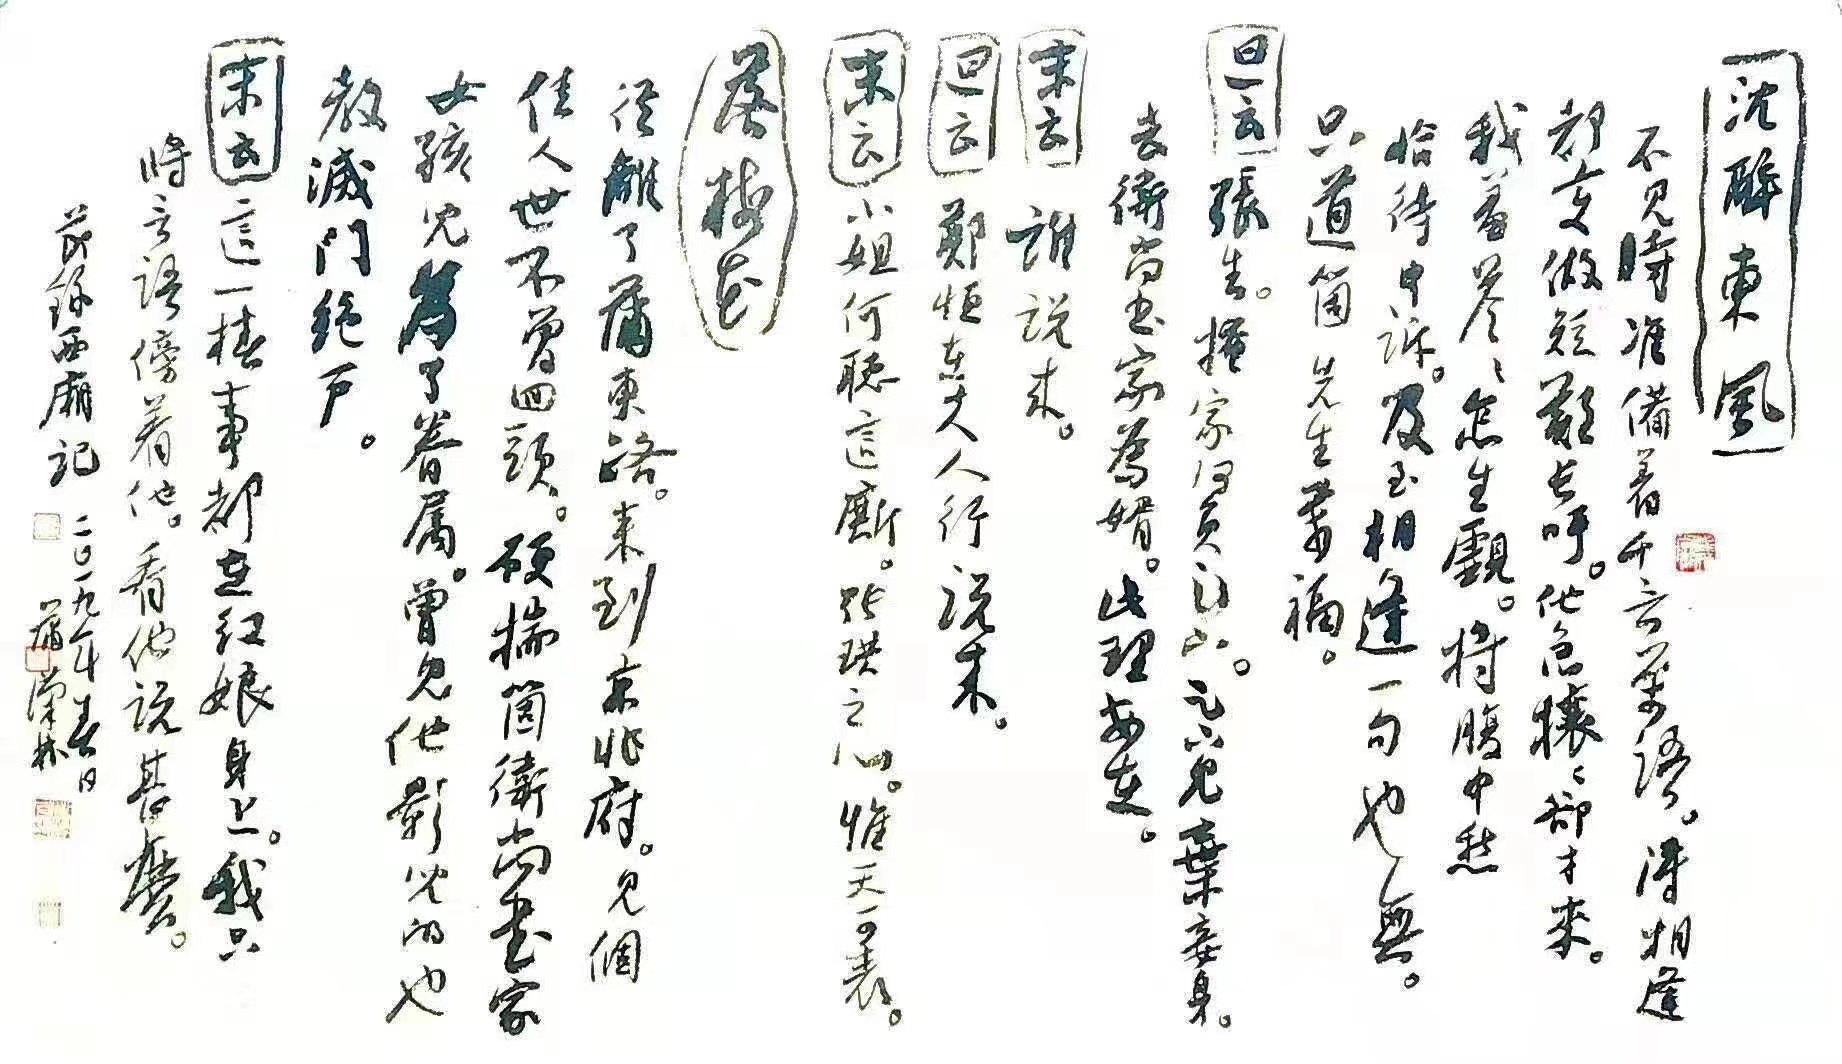 沈醉東風
不見時准備着千言萬語。得相逢
都變做短歎長吁。他急攘〻卻才來。
我羞答〻怎生覷。將腹中愁
恰待申訴。及至相逢一句也無。
只道箇先生萬福。
旦云 張生。俺家何負足下。足下見棄妾身。
去衛尚書家為婿。此理安在。
末云 誰說來。
旦云 鄭恒在夫人行說來。
末云 小姐何聽這廝。張珙之心。惟天可表。
落梅花
從離了蒲東路。來到京兆府。見個
佳人世不曾回頭。硬揣箇衛尚書家
女孩兒為了眷屬。曾見他影兒的也
教滅門絕戶。
末云 這一樁事都在紅娘身上。我只
將言語傍着他。看他說甚麼。
西廂記 二〇一九年春日
漢林